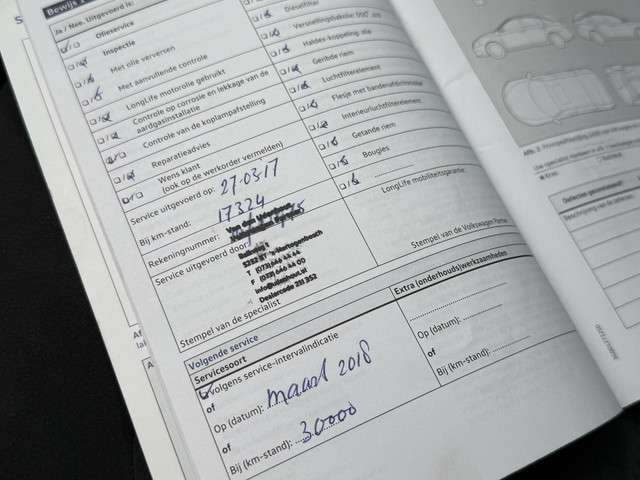 Bewijs
Ja / Nee. Uitgevoerd is:
Olieservice
Inspectie
Met olie verversen
Met aanvullende controle
LongLife motorolie gebruikt
Controle op corrosie en lekkage van de
aardgasinstallatie
Controle van de koplampafstelling
Reparatieadvies
Wens klant
(ook op de werkorder vermelden)
Service uitgevoerd op: 27.03.17
Bij km-stand: 17324
Rekeningnummer:
Service uitgevoerd door:
's-Hertogenbosch
T (073) 646 44 44
F (073) 646 44 00
Dealercode 251 352
Stempel van de specialist
Dieselfilter
Haldex-koppeling: olie
Geribde riem
Luchtfilterelement
Flesje met bandenafdichtmiddel
Interieurluchtfilterelement
Getande riem
Bougies
LongLife mobiliteitsgarantie:
Stempel van de Volkswagen Partner
Volgende service
Servicesoort
volgens service-intervalindicatie
of
Op (datum): maart 2018
of
Bij (km-stand): 30000
Extra (onderhouds)werkzaamheden
Op (datum):
of
Bij (km-stand):